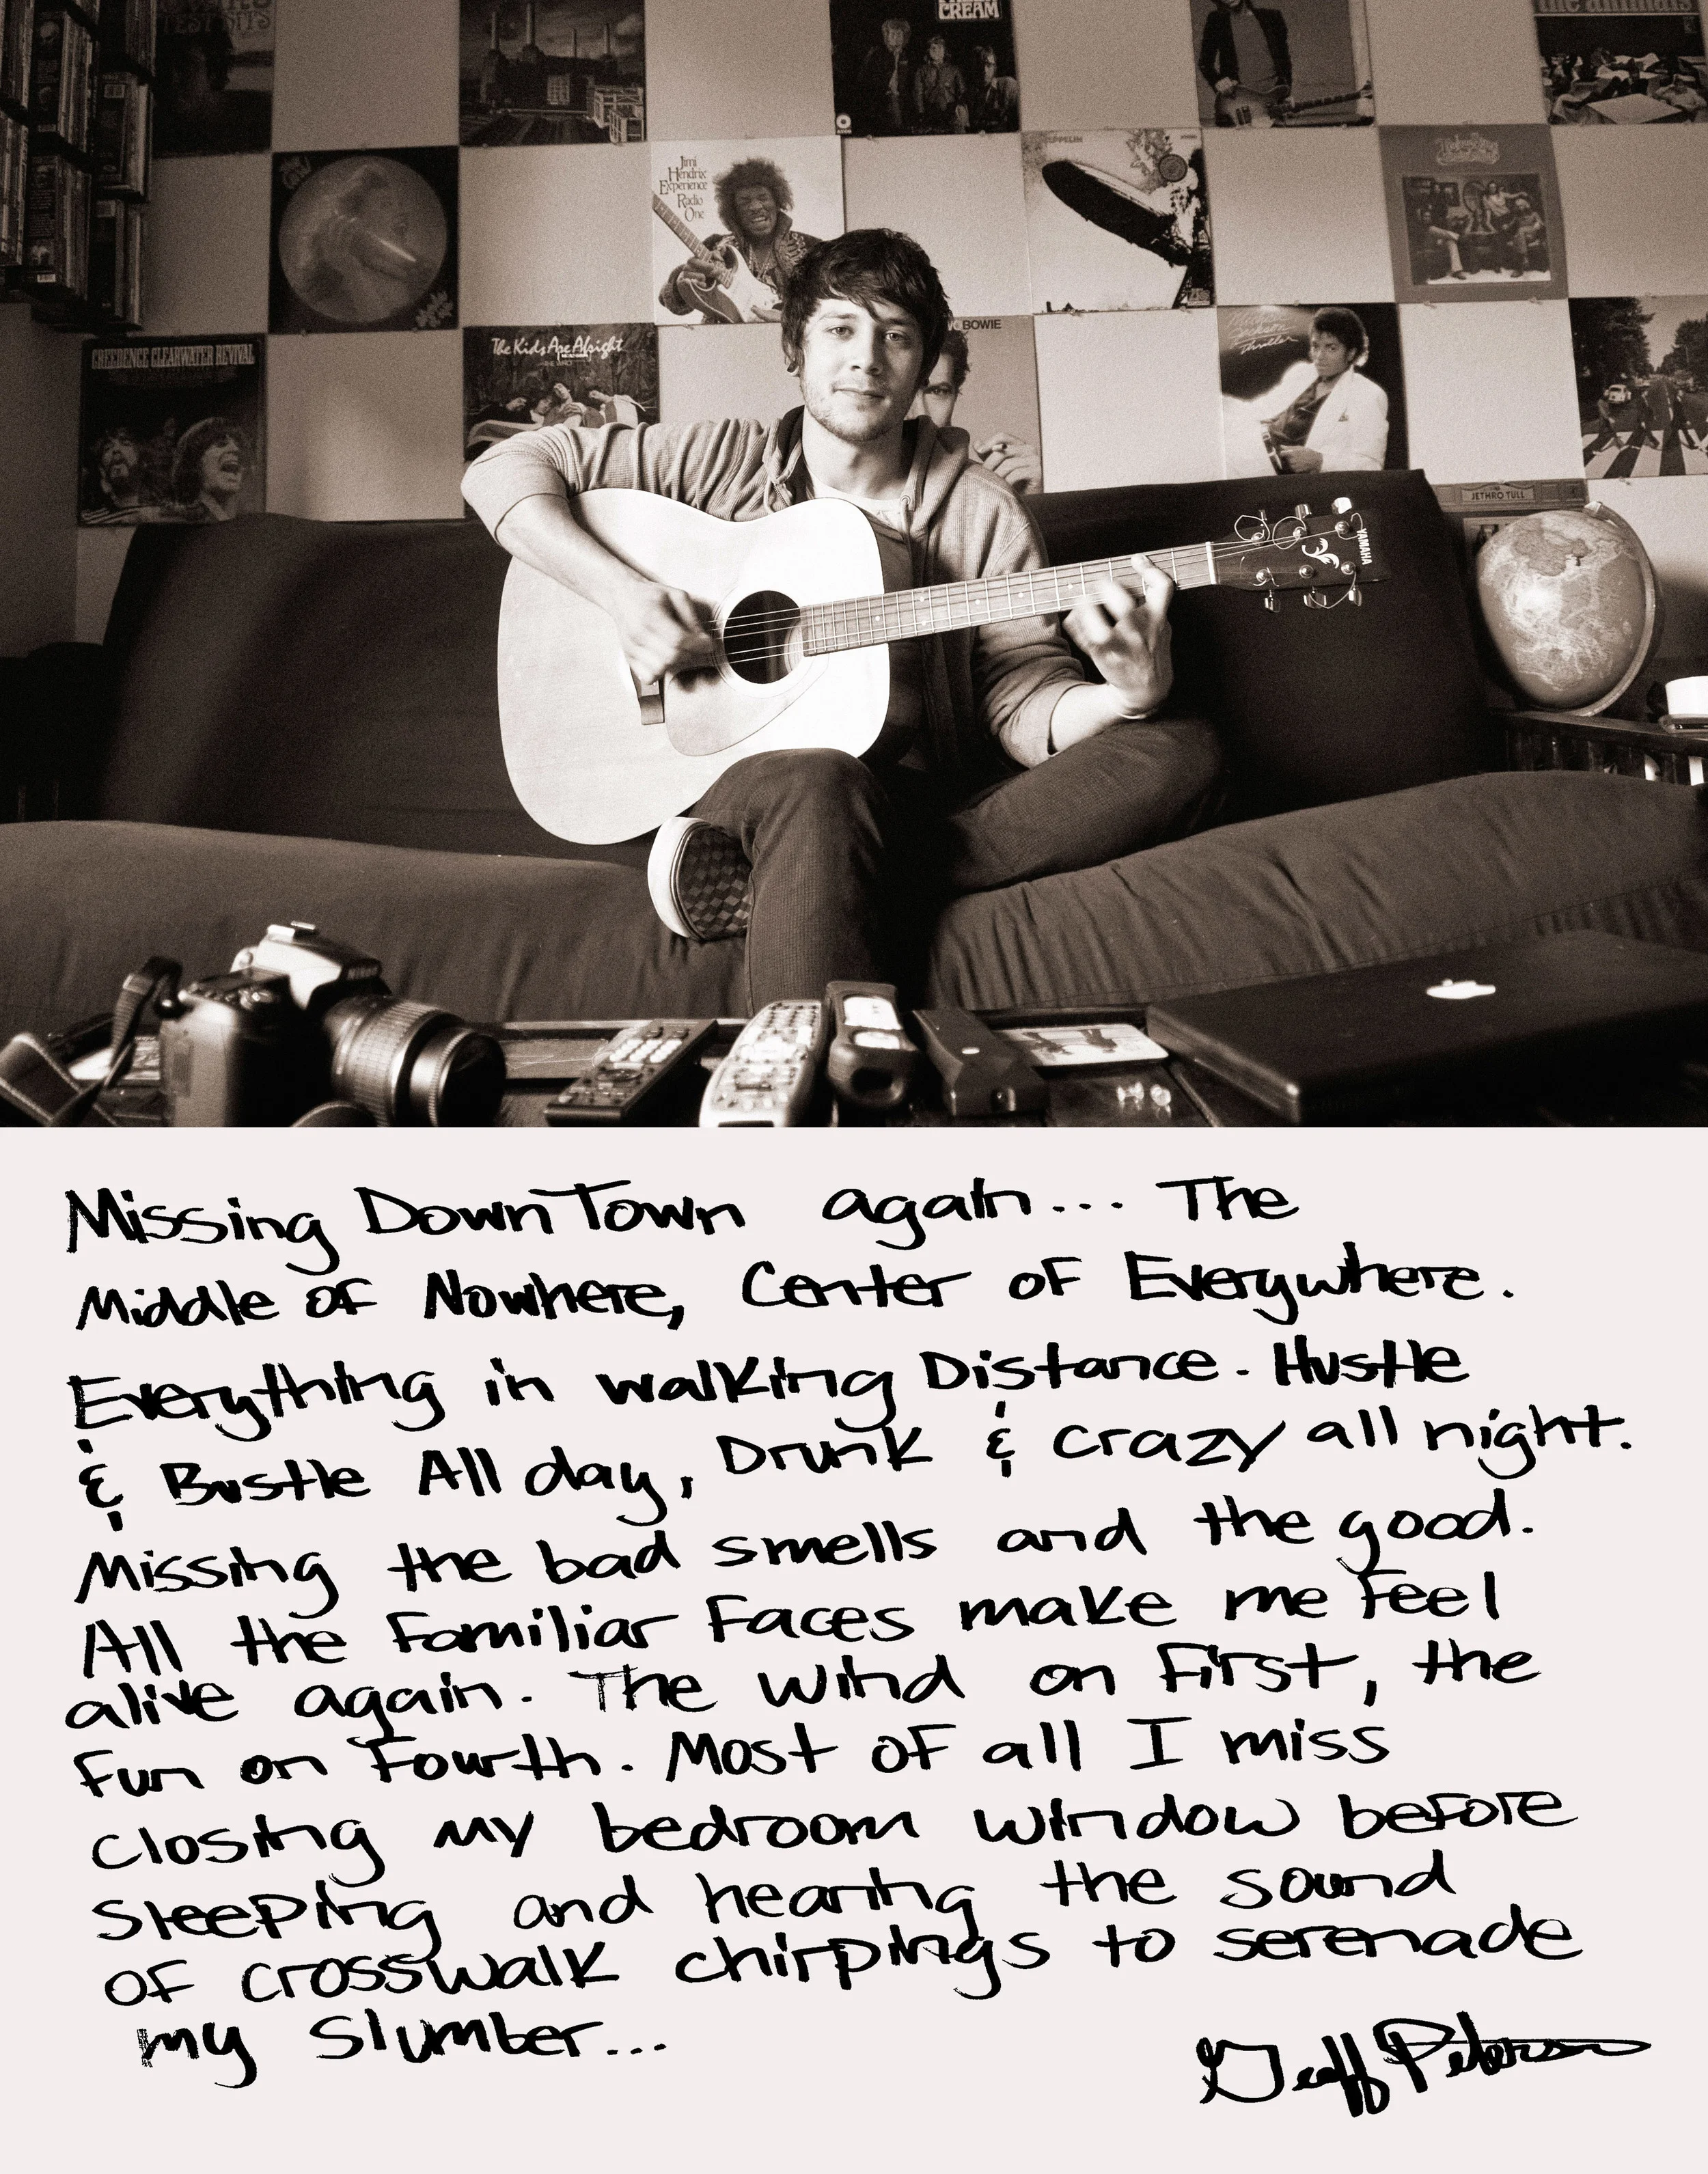 CREAM
the animals
Jimi
Hendrix
Experience
Radio
One
ZEPPELIN
BOWIE
CREEDENCE CLEARWATER REVIVAL
The Kids Are Alright
Thriller
JETHRO TULL
YAMAHA
Nikon
Missing DownTown again... The
Middle of Nowhere, Center of Everywhere.
Everything in walking Distance. Hustle
& Bustle All day, Drunk & crazy all night.
Missing the bad smells and the good.
All the Familiar Faces make me feel
alive again. The wind on First, the
fun on Fourth. Most of all I miss
closing my bedroom window before
sleeping and hearing the sound
of crosswalk chirpings to serenade
my slumber...
Geoff Peterson